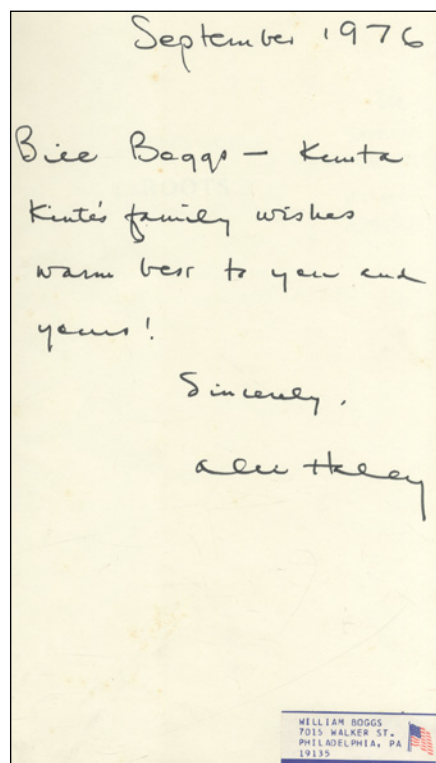 September 1976
Bill Boggs — Kunta
Kinte's family wishes
warm best to you and
yours!
Sincerely,
Alex Haley
WILLIAM BOGGS
7015 WALKER ST.
PHILADELPHIA, PA
19135